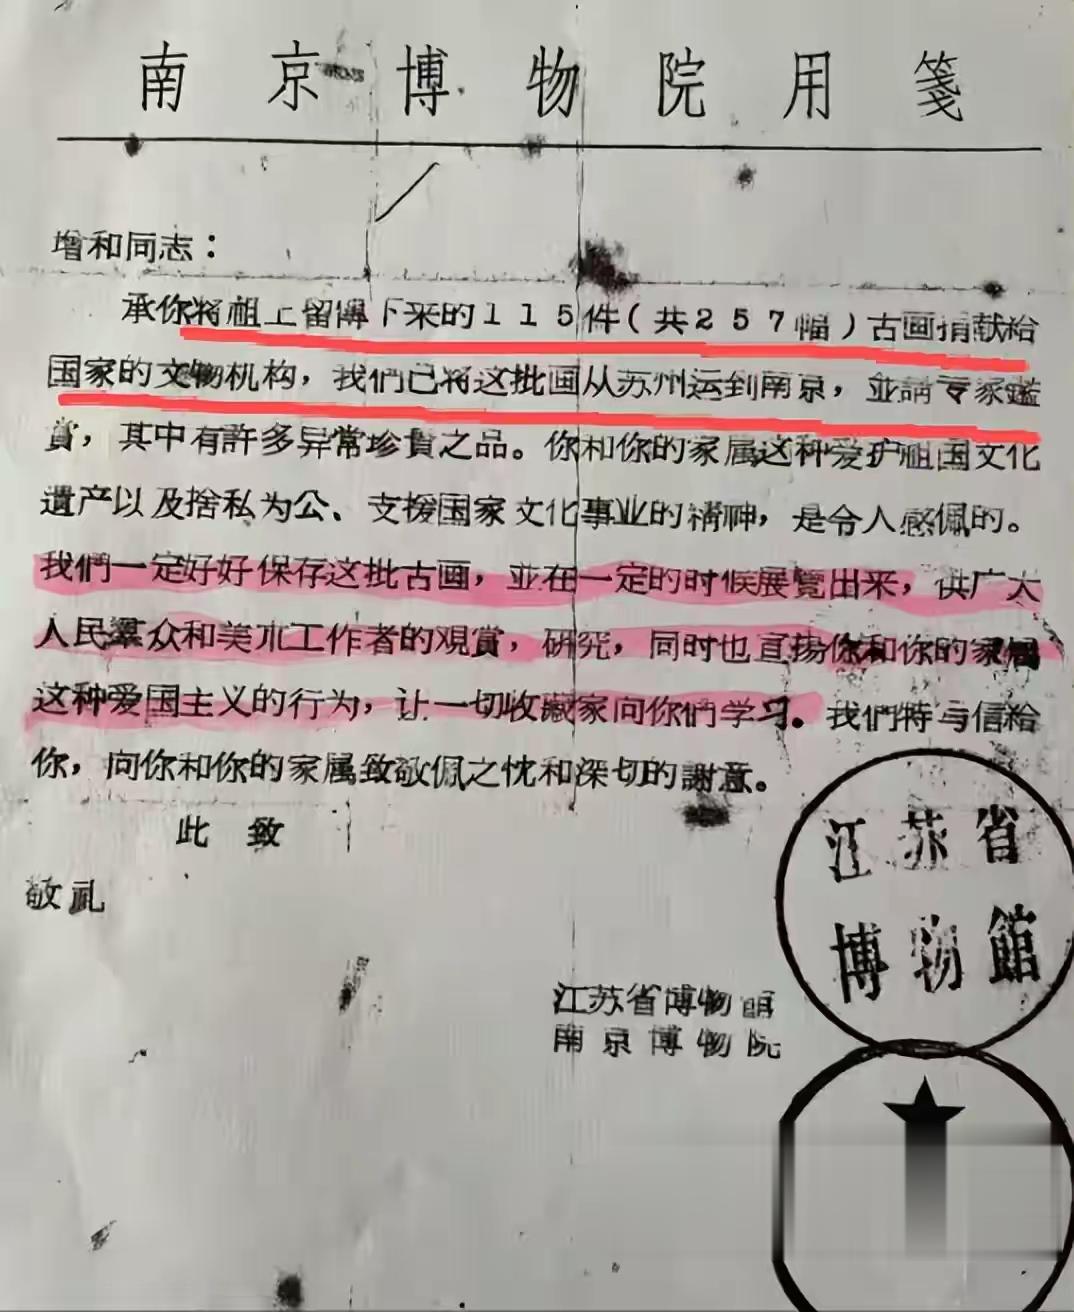 南京博物院用箋
增和同志：
承你将祖上留傳下来的１１５件（共２５７幅）古画捐献给
国家的文物机构，我們已将这批画从苏州运到南京，並請专家鑑
賞，其中有許多异常珍貴之品。你和你的家属这种爱护祖国文化
遺产以及捨私为公、支援国家文化事业的精神，是令人感佩的。
我們一定好好保存这批古画，並在一定的时候展覽出来，供广大
人民羣众和美朮工作者的观賞，研究，同时也宣揚你和你的家属
这种爱国主义的行为，让一切收藏家向你們学习。我們特与信給
你，向你和你的家属致敬佩之忱和深切的謝意。
此致
敬礼
江苏省博物館
南京博物院
江苏省
博物館